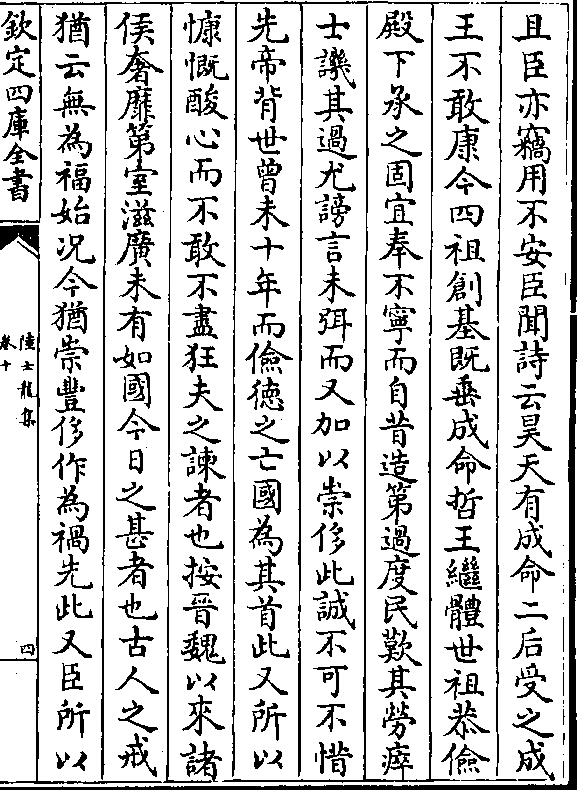 且臣亦竊用不安臣聞詩云昊天有成命二后受之成
王不敢康今四祖創基既垂成命哲王繼體世祖恭儉
殿下承之固宜奉不寧而自昔造第過度民歎其勞瘁
士譏其過尤謗言未弭而又加以崇侈此誠不可不惜
先帝背世曾未十年而儉徳之亡國為其首此又所以
慷慨酸心而不敢不盡狂夫之諫者也按晉魏以來諸
侯奢靡第室滋廣未有如國今日之甚者也古人之戒
猶云無為福始况今猶崇豐侈作為禍先此又臣所以
欽定四庫全書
陸士龍集
卷十
四